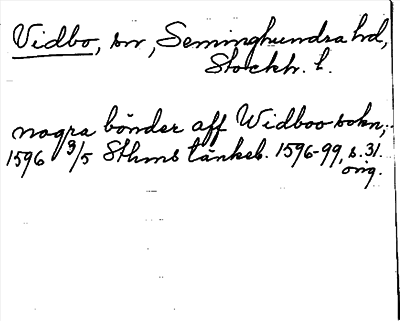 Vidbo, sn, Seminghundra hd,
Stockh. l.
nogra bönder aff Widboo sokn;
1596 3/5 Sthms tänkeb. 1596-99, s. 31.
orig.